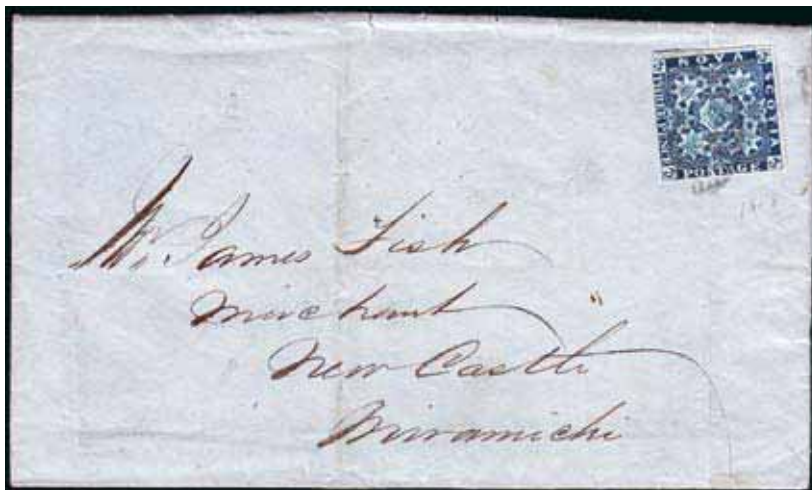 NOVA
SCOTIA
POSTAGE
Mr. James Fish
Merchant
New Castle
Miramichi